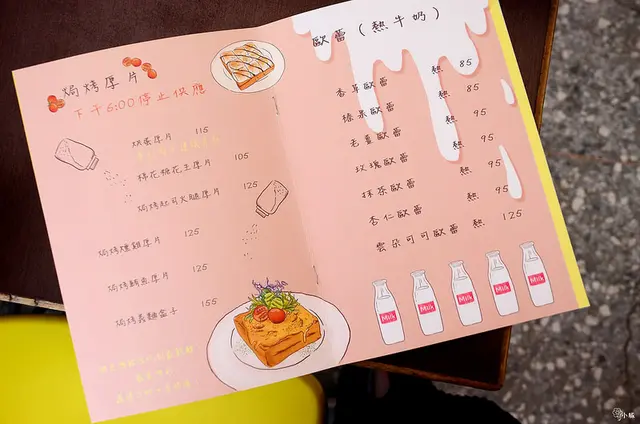 焗烤厚片
下午6:00停止供應
烘蛋厚片 115
棉花糖花生厚片 105
焗烤起司火腿厚片 125
焗烤燻雞厚片 125
焗烤鮪魚厚片 125
焗烤義麵盒子 155
歐蕾(熱牛奶)
香草歐蕾 熱 85
榛果歐蕾 熱 85
老薑歐蕾 熱 95
玫瑰歐蕾 熱 95
抹茶歐蕾 熱 95
杏仁歐蕾 熱 95
雲朵可可歐蕾 熱 125
Milk
Milk
Milk
Milk
Milk
小楊